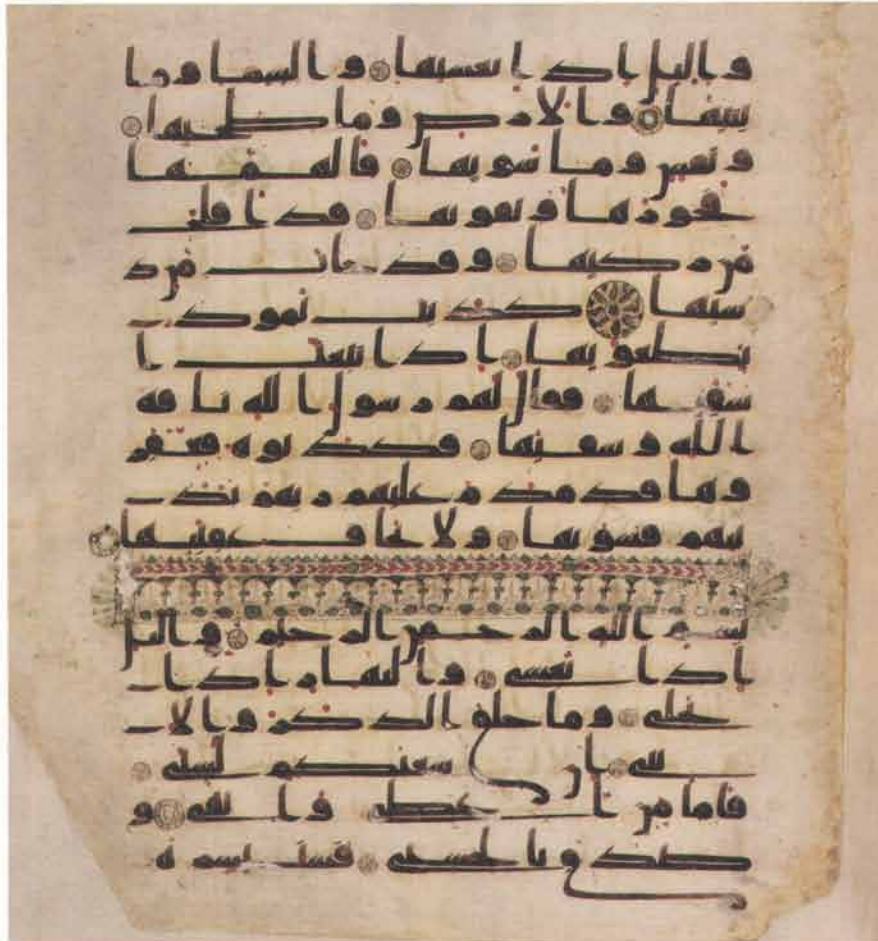 واليل اذا يغشيها والسما وما
بنيها والارض وما طحيها
ونفس وما سويها فالهمها
فجورها وتقويها قد افلح
من زكيها وقد خاب من د
سيها كذبت ثمود
بطغويها اذ انبعث ا
شقيها فقال لهم رسول الله ناقه
الله وسقيها فكذبوه فعقر
وها فدمدم عليهم ربهم بذ
نبهم فسويها ولا يخاف عقبيها
بسم الله الرحمن الرحيم واليل
اذا يغشى والنهار اذا
تجلى وما خلق الذكر والا
نثى ان سعيكم لشتى
فاما من اعطى واتقى و
صدق بالحسنى فسنيسره